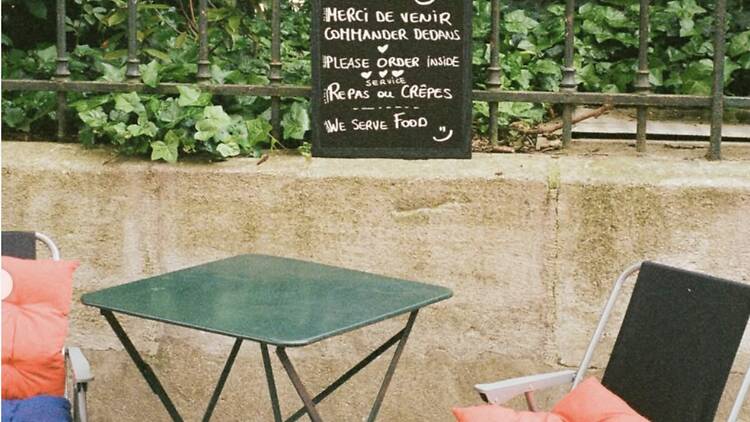 MERCI DE VENIR
COMMANDER DEDANS
PLEASE ORDER INSIDE
SERVICE
REPAS OU CRÊPES
WE SERVE FOOD